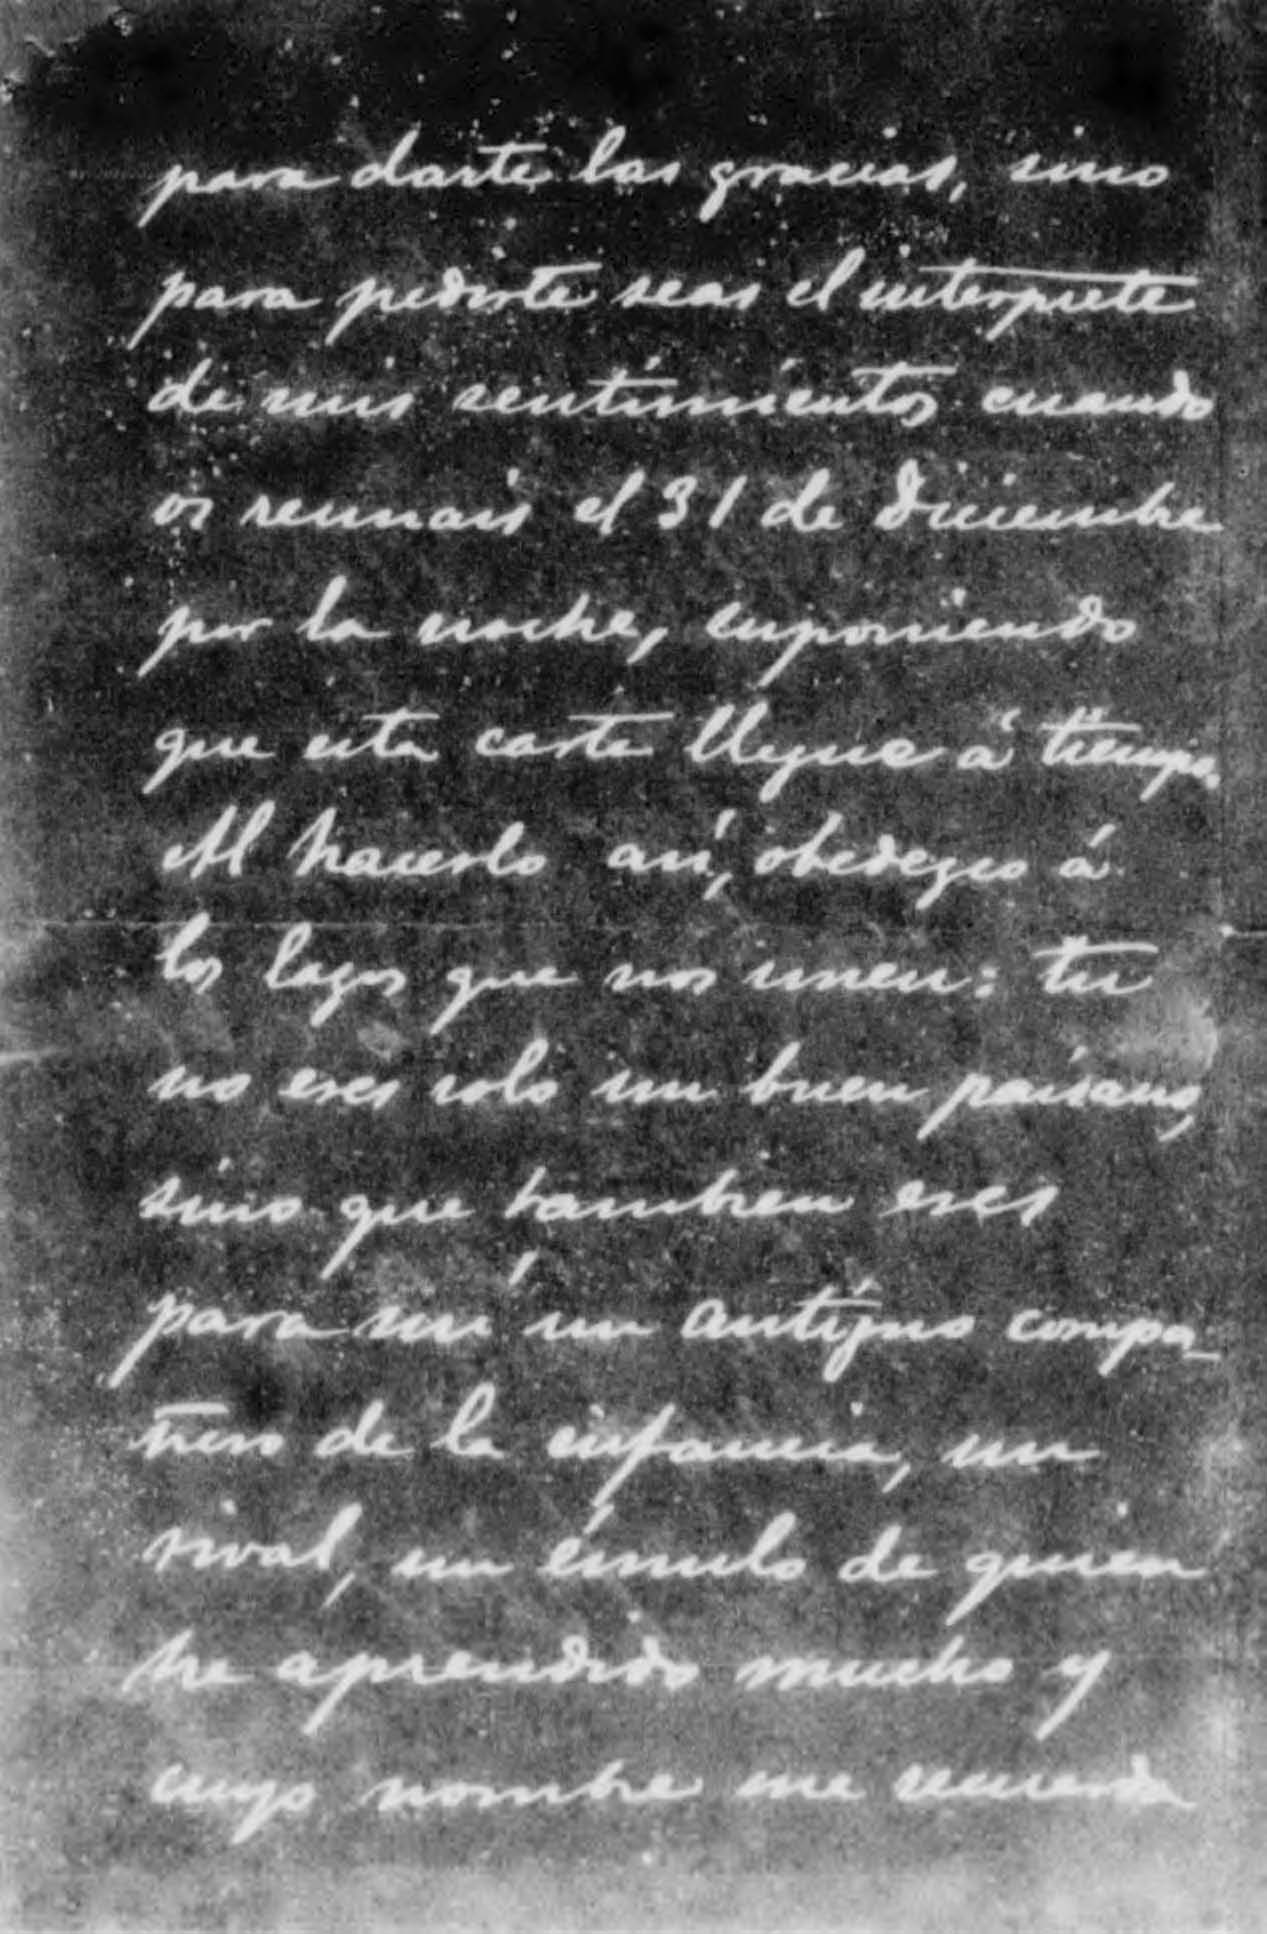 para darte las gracias, sino
para pedirte seas el interprete
de mis sentimientos cuando
os reunais el 31 de Diciembre
por la noche, suponiendo
que esta carta llegue á tiempo.
Al hacerlo así, obedezco á
los lazos que nos unen: tu
no eres solo un buen paisano,
sino que tambien eres
para mí un antíguo compa-
ñero de la infancia, un
rival, un émulo de quien
he aprendido mucho y
cuyo nombre me recuerda